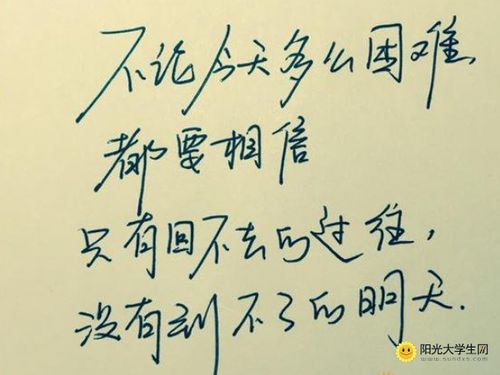 不论今天多么困难
都要相信
只有回不去的过往，
没有到不了的明天.
阳光大学生网
www.sundxs.com